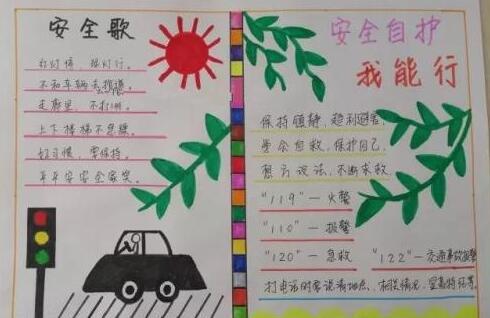 安全歌
红灯停，绿灯行。
不和车辆去
走廊里，不打闹。
上下楼梯不
好习惯，要保持。
平平安安全家笑。
安全自护
我能行
保持镇静，趋利避害。
学会自救，保护自己。
想方设法，不断求救
"119"—火警
"110"—报警
"120"—急救 "122"—交通事故报警
打电话时要说清地点、相关情况、显著特征等。